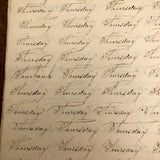 Thursday Thursday Thursday
Thursday Thursday Thursday
Thursday Thursday Thursday
Thursday Thursday Thursday
Thursday Thursday Thursday
Thursday Thursday Thursday
Thursday Thursday Thursday
Thursday Thursday Thursday
Thursday Thursday Thursday